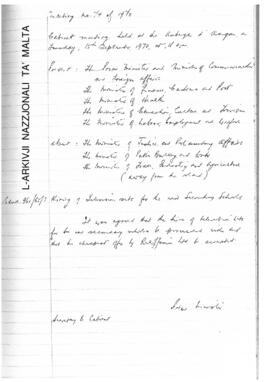 L-ARKIVJI NAZZJONALI TA' MALTA
Meeting No. 74 of 1970
Cabinet meeting held at the Auberge d'Aragon on
Tuesday, 15th September 1970, at 11 a.m.
Present: The Prime Minister and Minister of Commonwealth
and Foreign Affairs
The Minister of Finance, Customs and Port
The Minister of Health
The Minister of Education, Culture and Tourism
The Minister of Labour, Employment and Welfare
Absent: The Minister of Justice and Parliamentary Affairs
The Minister of Public Building and Works
The Minister of Trade, Industry and Agriculture
(away from the island)
Hiring of Television sets for the new Secondary Schools
It was agreed that the hire of television sets
for the new secondary schools be and
that the cheapest offer by Rediffusion Ltd be accepted.
Secretary to Cabinet
Prime Minister